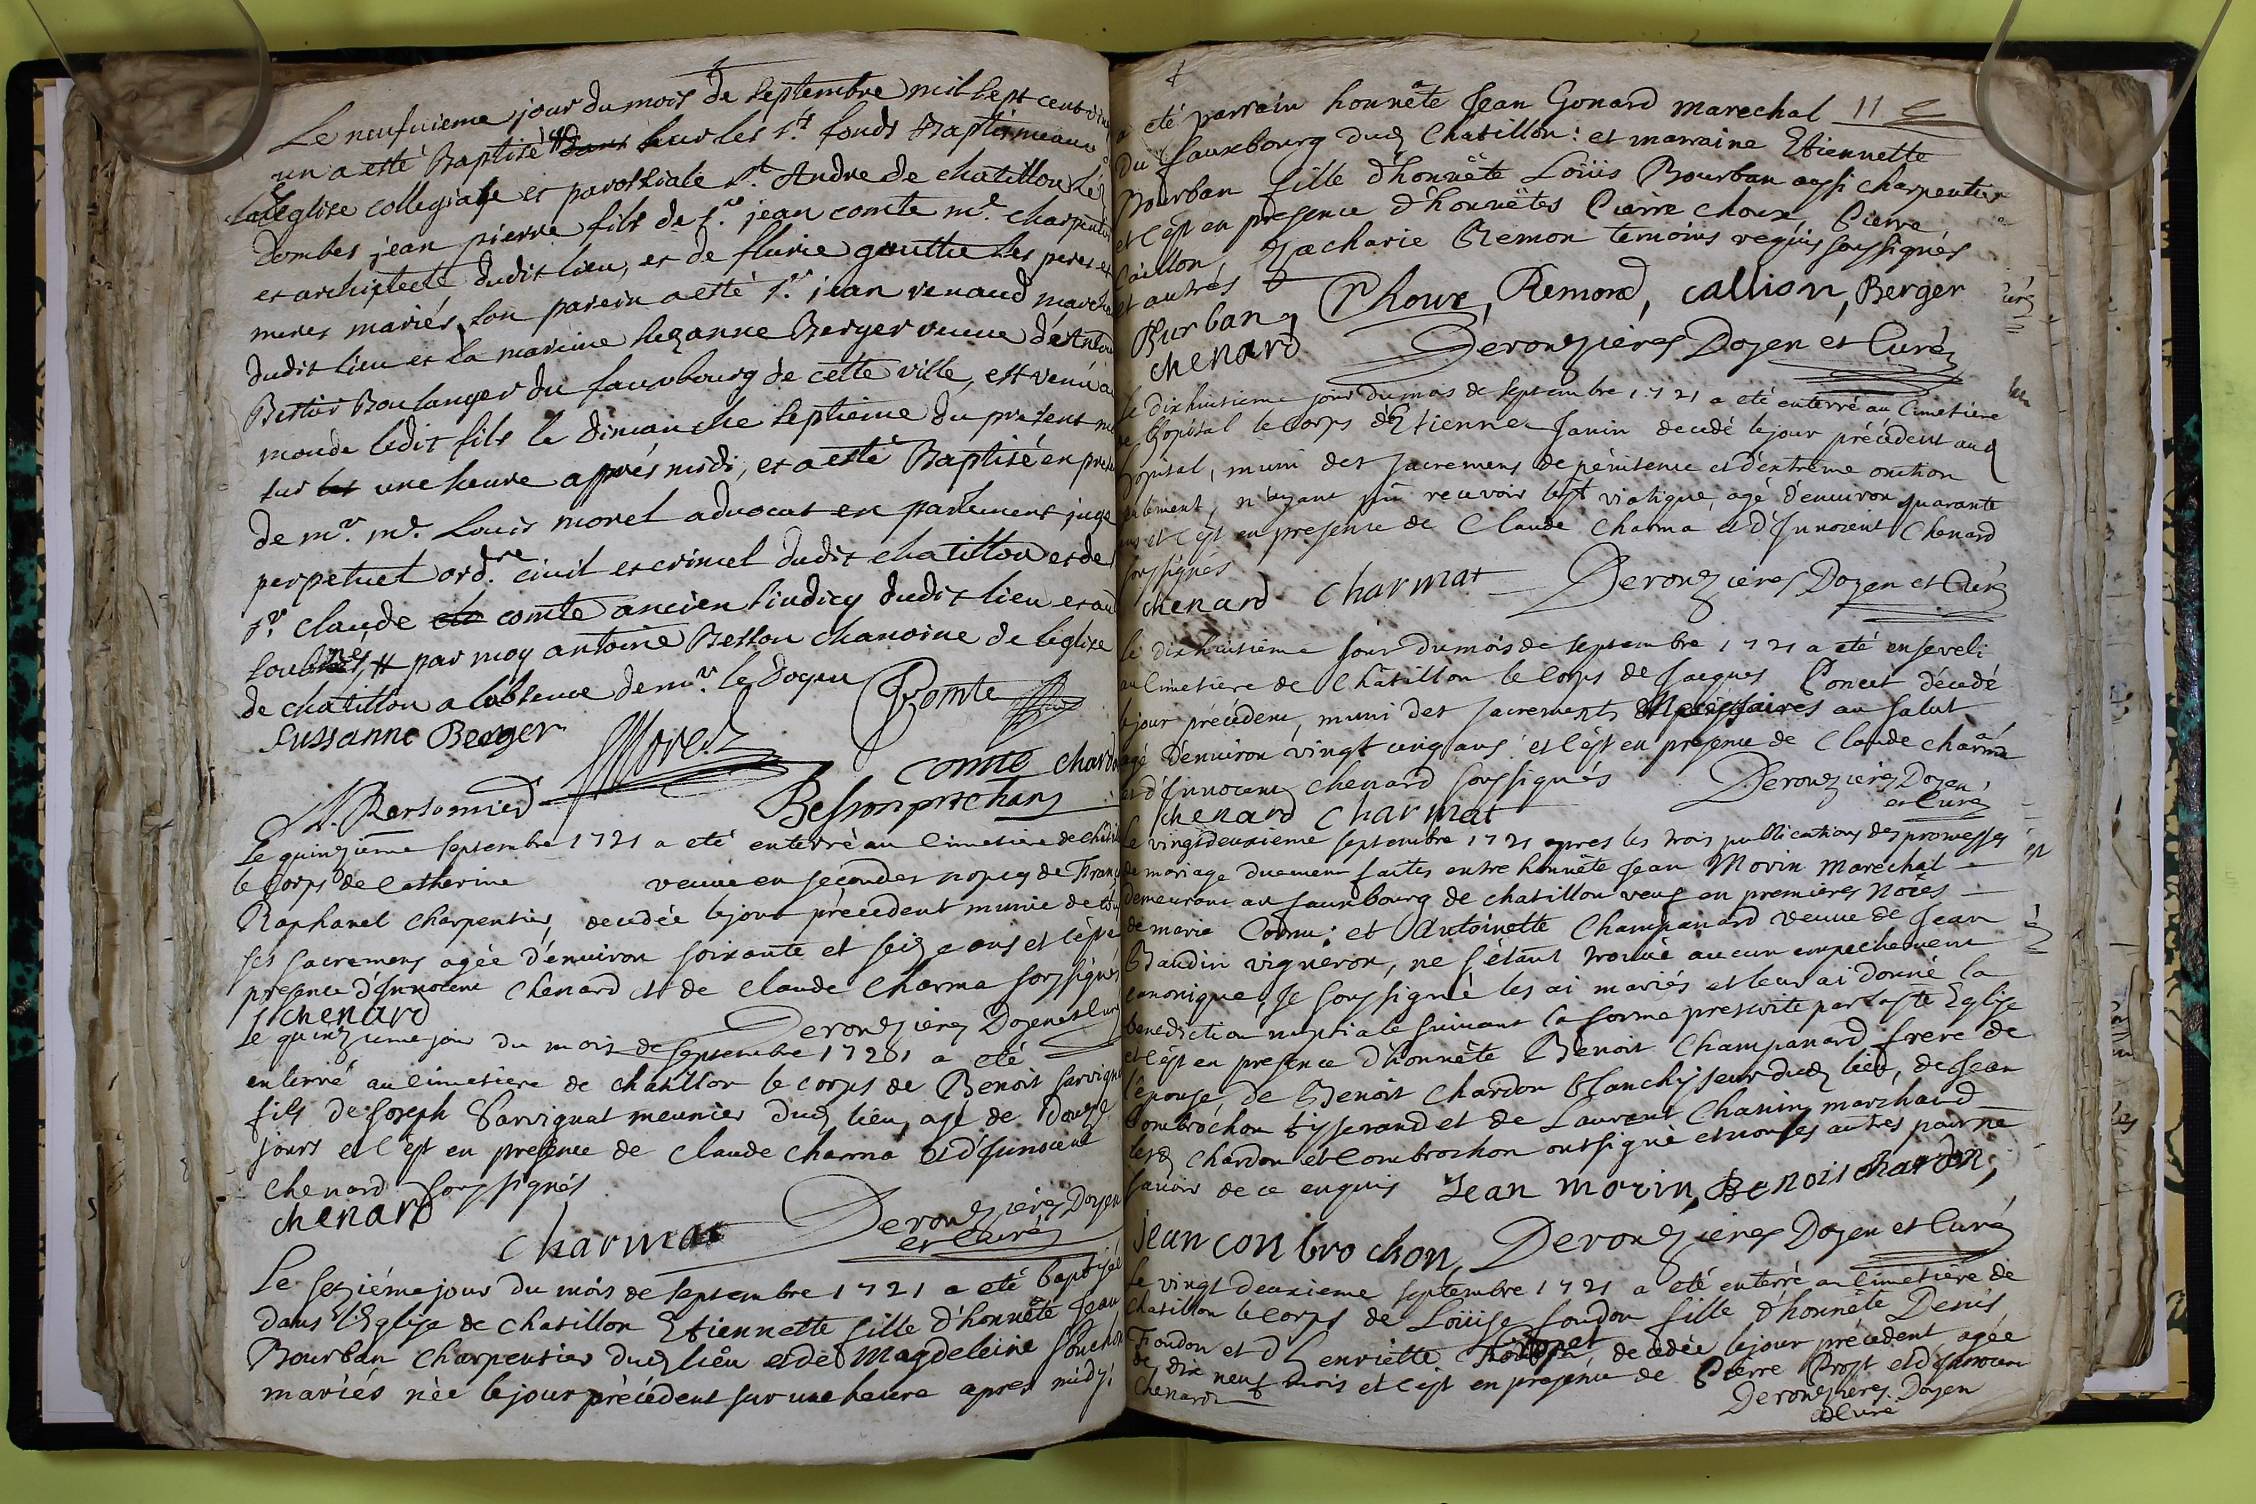 Le neufvieme jour du mois de septembre mil sept cent vingt
un a esté Baptisé sur les sts fonds Baptismeaux
Leglise collegiale et paroissiale st Andre de chatillon lès
dombes jean pierre fils de sr jean comte me charpentier
et architecte dudit lieu, et de flurie gouttu ses peres et
meres mariés, son parein a esté sr jean renaud marchand
dudit lieu et la mareine suzanne Berger veuve d'Antoine
Boulanger du fauxbourg de cette ville, est venu au
monde ledit fils le dimanche septieme du present mois
sur une heure apprés midi, et a esté Baptisé en presence
de mr me Louis morel advocat en parlement juge
perpetuel ordre civil et crimel dudit chatillon et de
sr claude comte ancien sindicq dudit lieu et aud
par moy antoine Besson chanoine de leglise
de chatillon a labsence de mr le doyen Comte
sussanne Berger Morel
comte chardon
Besson prt chan
Le quinzième septembre 1721 a eté enterré au cimetiere de châtillon
le corps de Catherine veuve en secondes nopces de Franc
Raphanel charpentier, decedée le jour précedent munie de tous
ses sacremens agée d'environ soixante et seize ans et c'est en
presence d'Innocent Chenard et de Claude Charma soussignés
chenard Deronzieres Doyen et Curé
Le quinzieme jour du mois de septembre 1721 a eté
enterré au cimetiere de chatillon le corps de Benoit Sarvignat
fils de Joseph Sarvignat meunier dud lieu, agé de douze
jours et c'est en presence de Claude Charma et d'Innocent
Chenard soussignés
chenard
charmat Deronzieres Doyen
et Curé
Le seziéme jour du mois de septembre 1721 a eté baptisée
dans l'Eglise de chatillon Etiennette fille d'honnête Jean
Bourban charpentier dud lieu et de Magdeleine Souchon
mariés née le jour précédent sur une heure apres midy:
11
a eté parrain honnête Jean Gonard marechal
du fauxbourg dud Chatillon: et marraine Etiennette
Bourban fille d'honnête Loüis Bourban aussi charpentier
et c'est en presence d'honnêtes Pierre choux, Pierre
Caillon Zacharie Remon temoins requis soussignés
et autres
Burban, Choux, Remond, callion, Berger
chenard Deronzieres Doyen et Curé
Le dixhuitieme jour du mois de septembre 1721 a eté enterré au Cimetiere
de l'hopital le corps d'Etienne Janin decedé le jour précédent aud
hopital, muni des sacremens de pénitence et d'extrême onction
seulement, n'ayant pû recevoir le st viatique, agé d'environ quarante
ans et c'est en presence de Claude Charma et d'Innocent Chenard
soussignés
chenard charmat Deronzieres Doyen et Curé
Le dixhuitiéme jour du mois de septembre 1721 a eté enseveli
au Cimetiere de Châtillon le corps de Jacques Poncet décedé
le jour précedent, muni des sacrements Necessaires au salut
agé d'environ vingt cinq ans et c'est en presence de Claude charma
et d'Innocent Chenard soussignés Deronzieres Doyen
et Curé
chenard charmat
Le vingtdeuxieme septembre 1721 apres les trois publications des promesses
de mariage duement faites entre honnête Jean Morin Maréchal
demeurant au fauxbourg de chatillon veuf en premieres Noces
de marie Cornu: et Antoinette Champanard veuve de Jean
Baudin vigneron, ne s'étant trouvé aucun empechement
canonique, Je soussigné les ai mariés et leur ai donné la
benediction nuptiale suivant la forme prescrite par la ste Eglise
et c'est en presence d'honnête Benoit Champanard frere de
l'épouse, de Benoit Chardon blanchisseur dud lieu, de Jean
Combrochon tisserand et de Laurent Chanin, marchand
lesd Chardon et Combrochon ont signé et non les autres pour ne
savoir de ce enquis Jean morin, Benoist chardon,
jean conbrochon, Deronzieres Doyen et Curé
Le vingt deuxieme septembre 1721 a eté enterré au Cimetiére de
Chatillon le corps de Loüise foudon fille d'honnête Denis
Foudon et d'henriette decedée le jour précédent agée
de dix neuf mois et c'est en presence de Pierre Prost et d'Innocent
Chenard Deronzieres Doyen
et Curé